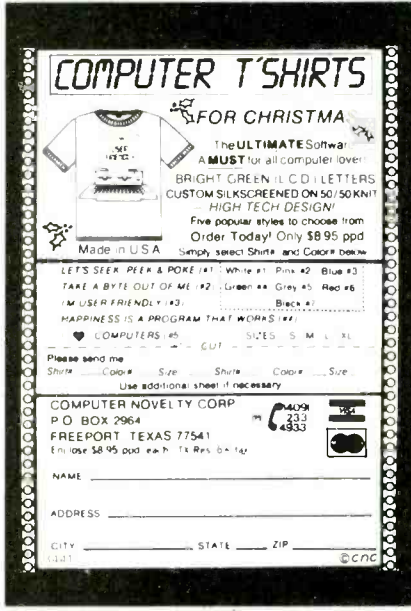 COMPUTER T'SHIRTS
FOR CHRISTMA
The ULTIMATE Softwar
A MUST for all computer lover
BRIGHT GREEN (L C D) LETTERS
CUSTOM SILKSCREENED ON 50/50 KNIT
— HIGH TECH DESIGN!
Five popular styles to choose from
Order Today! Only $8.95 ppd
Made in U S A
Simply select Shirt# and Color# below
LET'S SEEK PEEK & POKE (#1)
TAKE A BYTE OUT OF ME (#2)
I'M USER FRIENDLY (#3)
HAPPINESS IS A PROGRAM THAT WORKS (#4)
♥ COMPUTERS (#5)
White #1 Pink #2 Blue #3
Green #4 Grey #5 Red #6
Black #7
SIZES S M L XL
CUT
Please send me
Shirt# Color# Size Shirt# Color# Size
Use additional sheet if necessary
COMPUTER NOVELTY CORP
P O BOX 2964
FREEPORT TEXAS 77541
Enclose $8.95 ppd each Tx Res
409
233
4933
VISA
NAME
ADDRESS
CITY STATE ZIP
©cnc